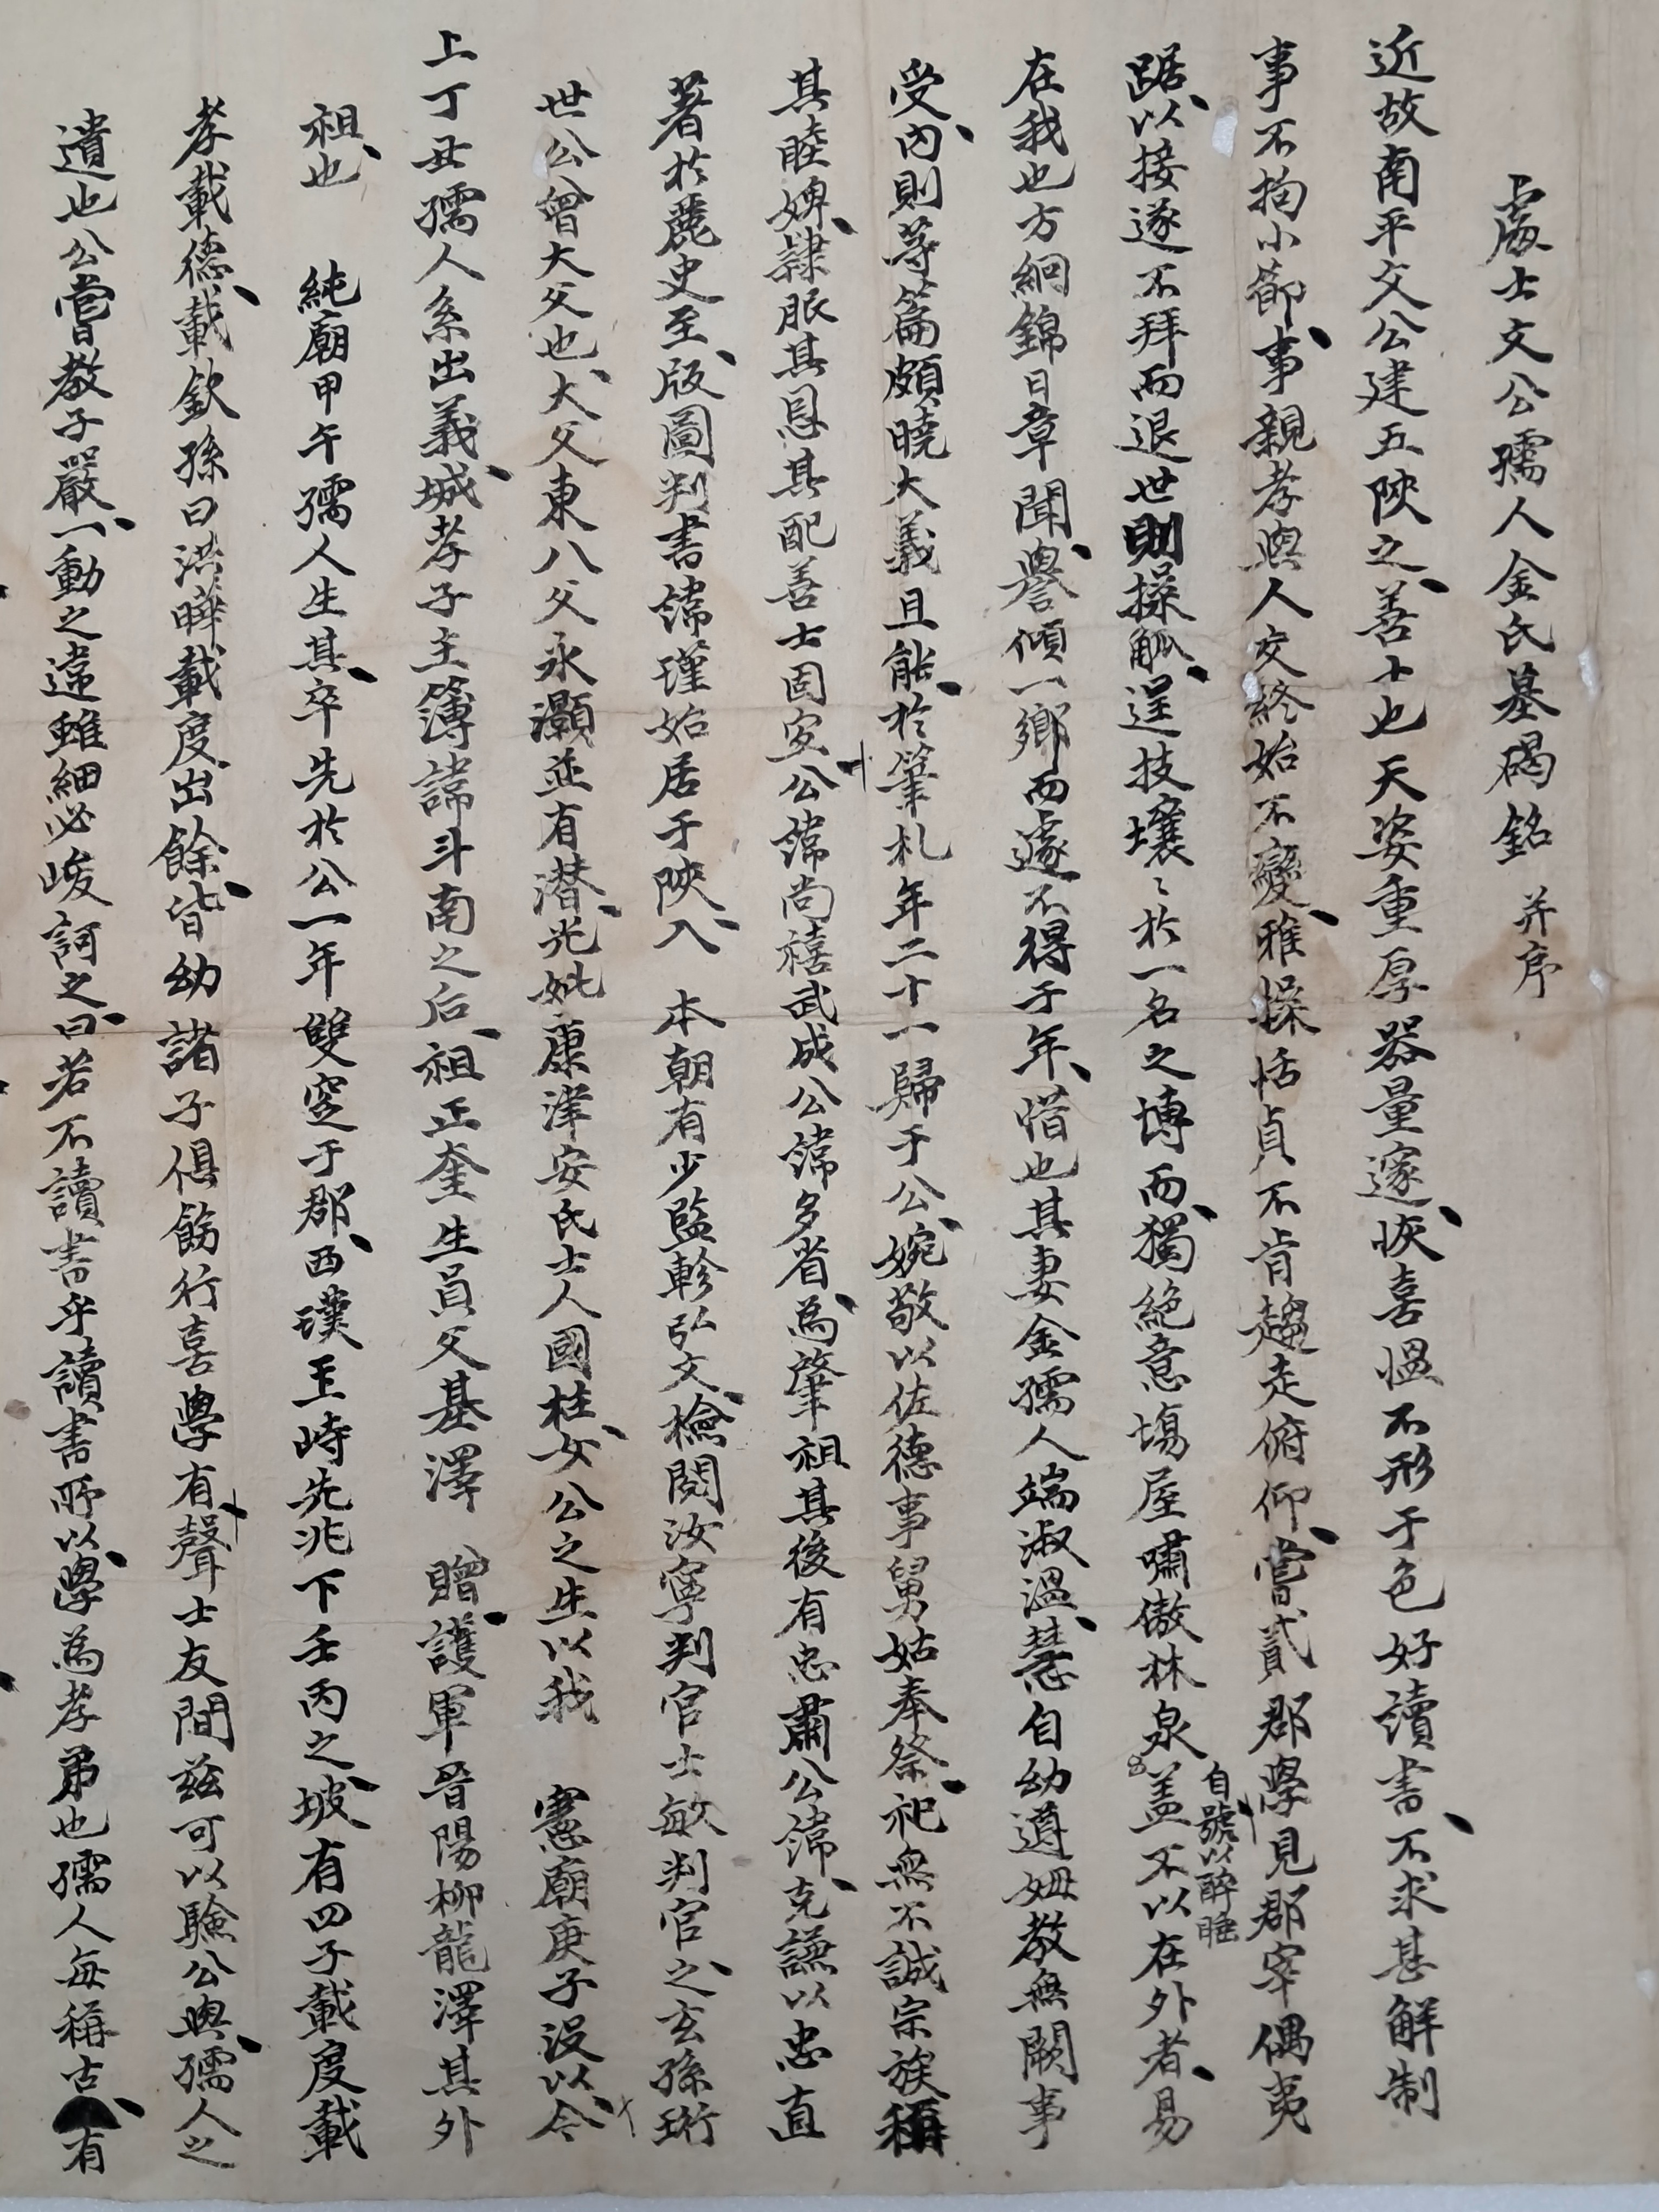 處士文公孺人金氏墓碣銘 并序
近故南平文公建五陜之善士也天姿重厚器量邃恢喜慍不形于色好讀書不求甚解制
事不拘小節事親孝與人交終始不變雅操恬貞不肯趨走俯仰嘗貳郡學見郡宰偶夷
踞以接遂不拜而退世則操觚逞技壤〻於一名之博而獨絶意場屋嘯傲林泉自號以醉睡盖不以在外者易
在我也方絅錦日章聞譽傾一鄉而遽不得于年惜也其妻金孺人端淑溫慧自幼遵姆教無闕事
受內則等篇頗曉大義且能於筆札年二十一歸于公婉敬以佐德事舅姑奉祭祀無不誠宗族稱
其睦婢隷服其恩其配善士固宜公諱尚禧武成公諱多省為肇祖其後有忠肅公諱克謙以忠直
著於麗史至版圖判書諱瑾始居于陜入 本朝有少監軫弘文檢閱汝寧判官士敏判官之玄孫珩
世公曾大父也大父東八父永灝並有潜光妣康津安氏士人國柱女公之生以我 憲廟庚子没以今
上丁丑孺人系出義城孝子主簿諱斗南之后祖正奎生員父基澤 贈護軍晉陽柳龍澤其外
祖也 純廟甲午孺人生其卒先於公一年雙窆于郡西璞玉峙先兆下壬丙之坡有四子載度載
孝載德載欽孫曰洪曄載度出餘皆幼諸子俱飭行喜學有聲士友間玆可以驗公與孺人之
遺也公嘗教子嚴一動之違雖細必峻訶之曰若不讀書乎讀書所以學為孝弟也孺人每稱古有